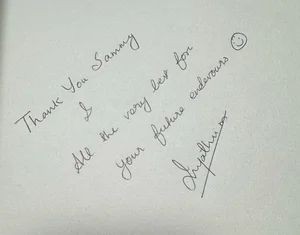 Thank You Sammy
&
All the very best for
your future endevours ☺